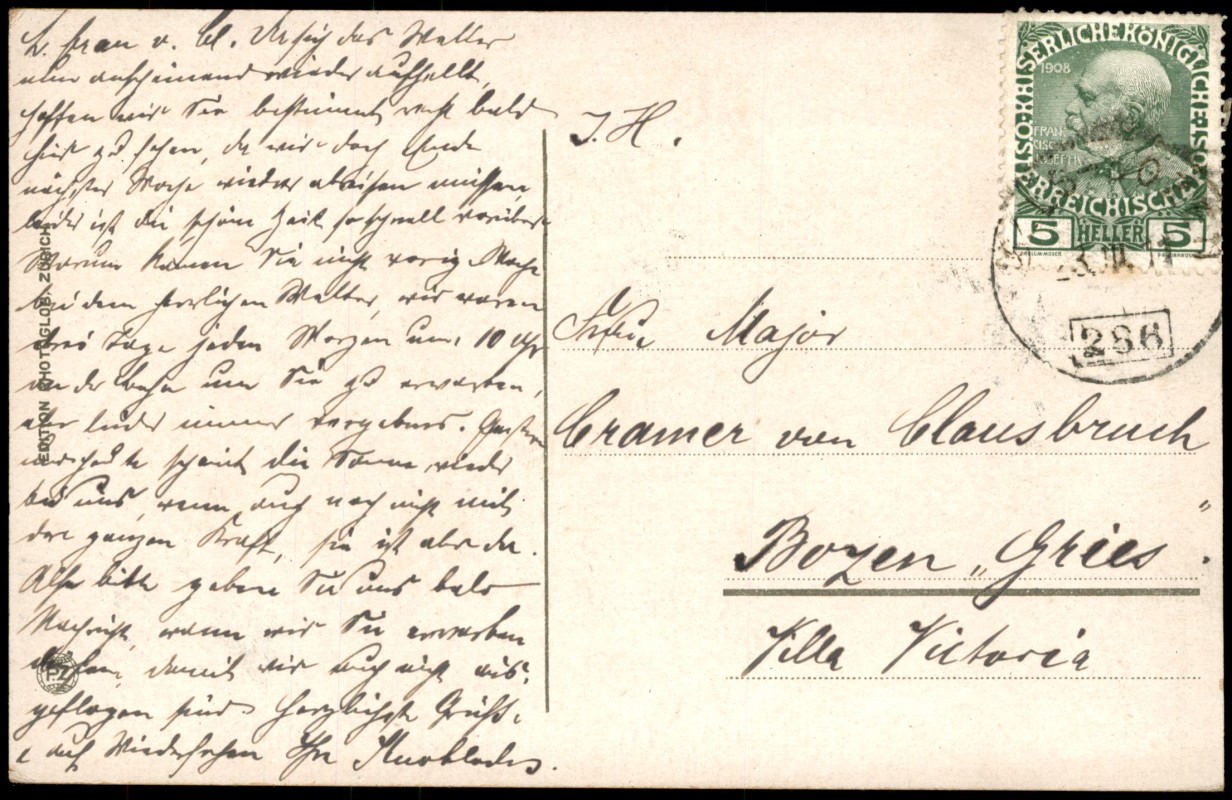 L. Frau v. Cl. Da sich das Wetter
nun anscheinend wieder aufhellt,
hoffen wir Sie bestimmt recht bald
hier zu sehen, da wir doch Ende
nächster Woche wieder abreisen müssen
leider ist die schöne Zeit so schnell vorüber.
Warum kamen Sie nicht vorig. Woche
bei dem herrlichen Wetter, wir waren
drei Tage jeden Morgen um 10 Uhr
an der Bahn um Sie zu erwarten,
aber leider immer vergebens. Gestern
scheint die Sonne wieder
bei uns, wenn auch noch nicht mit
der ganzen Kraft, sie ist aber da.
Also bitte geben Sie uns bald
Nachricht, wann wir Sie erwarten
dürfen, damit wir auch nicht aus-
geflogen sind. Herzlichste Grüße
u. auf Wiedersehen Ihre Knoblochs.
I. H.
Frau Major
Cramer von Clausbruch
Bozen „Gries"
Villa Victoria
KAISERLICHE KÖNIGLICHE ÖSTERREICHISCHE POST
1908
FRAN
CISCVS
IOSEPH I
5 HELLER 5
286
EDITION PHOTOGLOB, ZÜRICH
P.Z